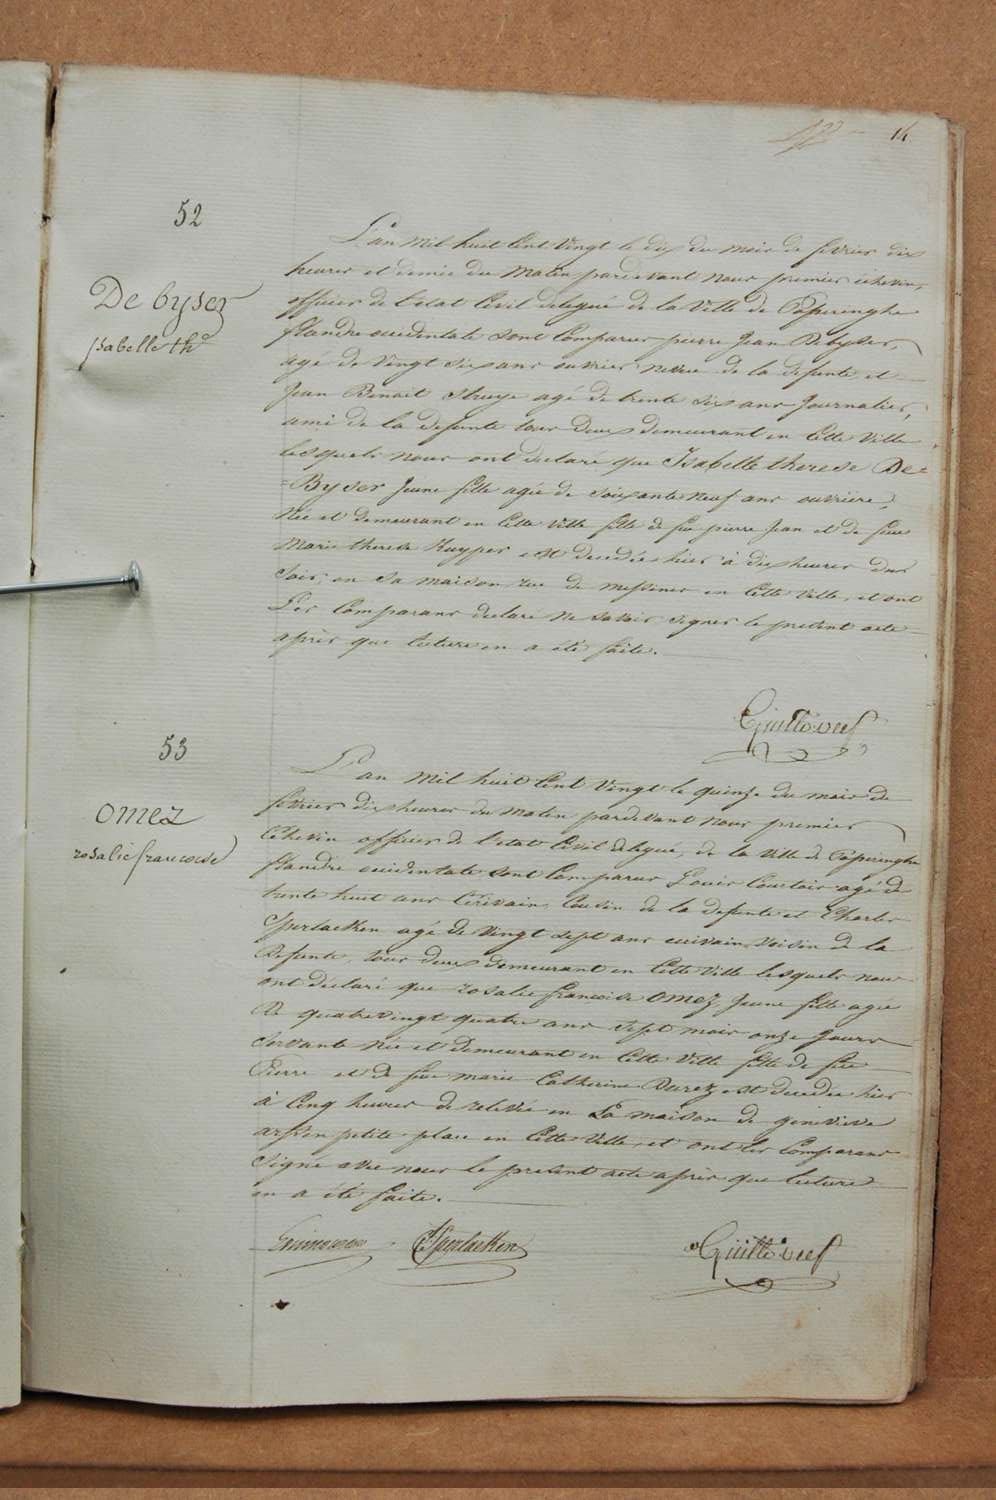 14.
52
De byser
isabelle th.e
L'an mil huit Cent Vingt le dix du mois de fevrier dix
heures et demie du Matin pardevant Nous premier échevin,
officier de l'etat Civil delegué de la Ville de Poperinghe
flandre occidentale sont Comparus pierre Jean Debyser,
agé de Vingt six ans ouvrier neveu de la defunte et
Jean Benoit Struye agé de trente six ans Journalier,
ami de la defunte tous deux demeurant en Cette Ville
lesquels nous ont declaré que Isabelle therese De=
=Byser Jeune fille agée de soixante neuf ans ouvriere,
Née et demeurant en Cette Ville fille de feu pierre Jean et de feue
Marie therese Kuyper est decedée hier à dix heures du
Soir, en sa maison rue de messines en Cette Ville, et ont
Les Comparans declaré Ne savoir signer le present acte
après que lecture en a été faite.
53
omez
rosalie francoise
L'an mil huit Cent Vingt le quinze du mois de
fevrier dix heures du Matin pardevant Nous premier
Echevin officier de l'etat Civil delegué, de la Ville de Poperinghe
flandre occidentale sont Comparus Louis Courtois agé de
trente huit ans Ecrivain, Cousin de la defunte et Charles
Sperlaeken agé de Vingt sept ans ecrivain, Voisin de la
Defunte, tous deux demeurant en Cette Ville lesquels nous
ont déclaré que rosalie francoise omez, Jeune fille agée
De quatrevingt quatre ans sept mois onze Jours
Servante Née et demeurant en Cette Ville fille de feu
Pierre et de feue marie Catherine Durez est decedée hier
à Cinq heures de relevée en La maison de genevieve
petite place en Cette Ville, et ont les Comparans
signé avec nous le present acte après que lecture
en a été faite.
CSperlaeken